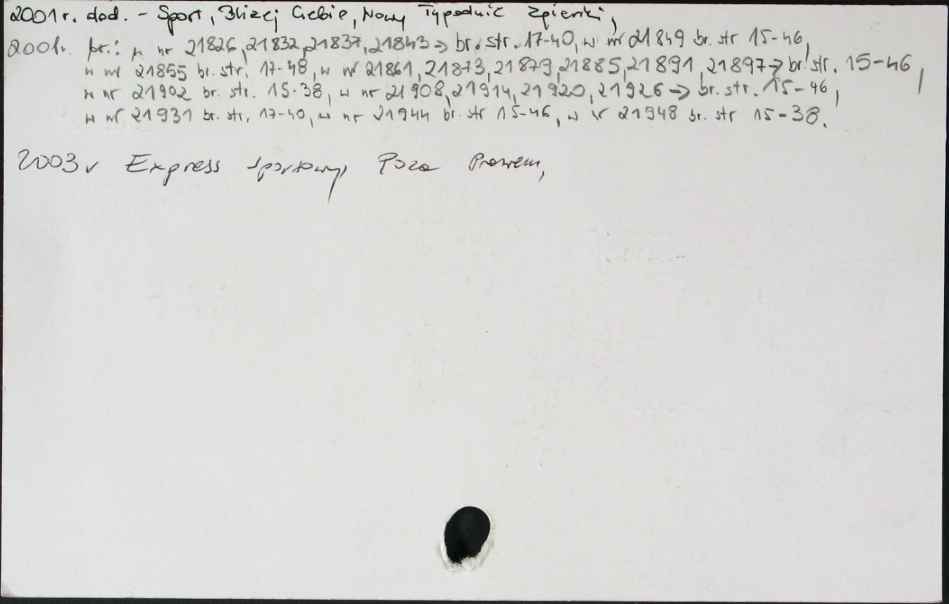 2001r. dod. - Sport, Bliżej Ciebie, Nowy Tygodnik Zgierski,
2001r. br.: w nr 21826, 21832, 21837, 21843 → br. str. 17-40, w nr 21849 br. str 15-46,
w nr 21855 br. str. 17-48, w nr 21861, 21873, 21879, 21885, 21891, 21897 → br. str. 15-46,
w nr 21902 br. str. 15-38, w nr 21908, 21914, 21920, 21926 → br. str. 15-46,
w nr 21931 br. str. 17-40, w nr 21944 br. str 15-46, w nr 21948 br. str 15-38.
2003 r Express Sportowy, Poza Prawem,